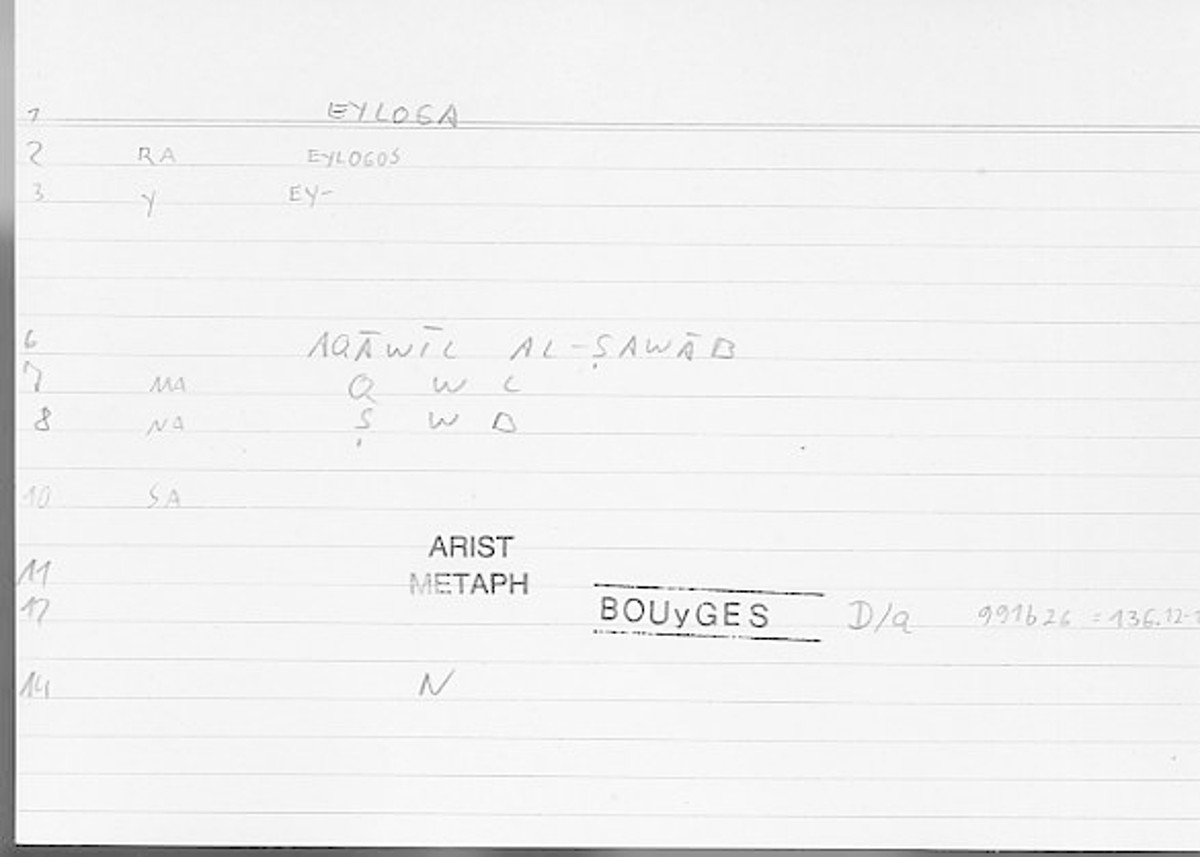 1 EYLOGA
2 RA EYLOGOS
3 Y EY-
6 AQĀWĪL AL-ṢAWĀB
7 MA Q W L
8 NA Ṣ W B
10 SA
ARIST
11 METAPH
12 BOUyGES D/a 991b26 = 136.12-1
14 N